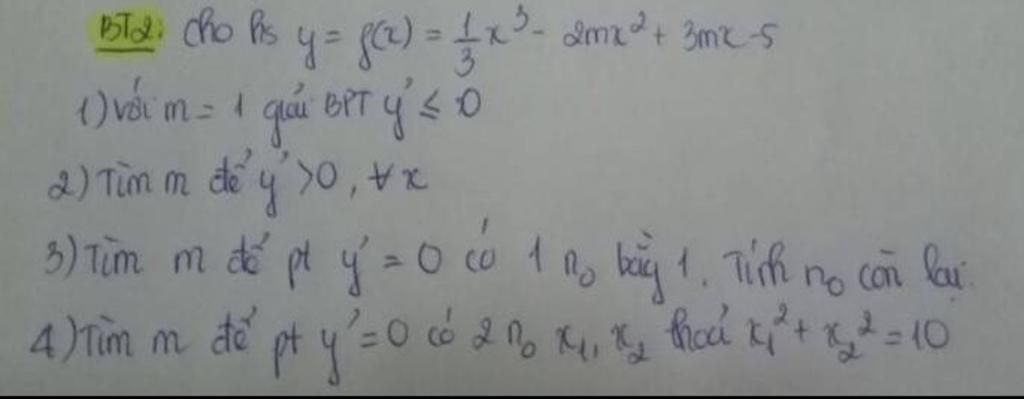 BT2: Cho hs y = f(x) = 1/3 x³ - 2mx² + 3mx - 5
1) Với m = 1 giải BPT y' ≤ 0
2) Tìm m để y' > 0, ∀x
3) Tìm m để pt y' = 0 có 1 n₀ bằng 1. Tính n₀ còn lại.
4) Tìm m để pt y' = 0 có 2 n₀ x₁, x₂ thoả x₁² + x₂² = 10